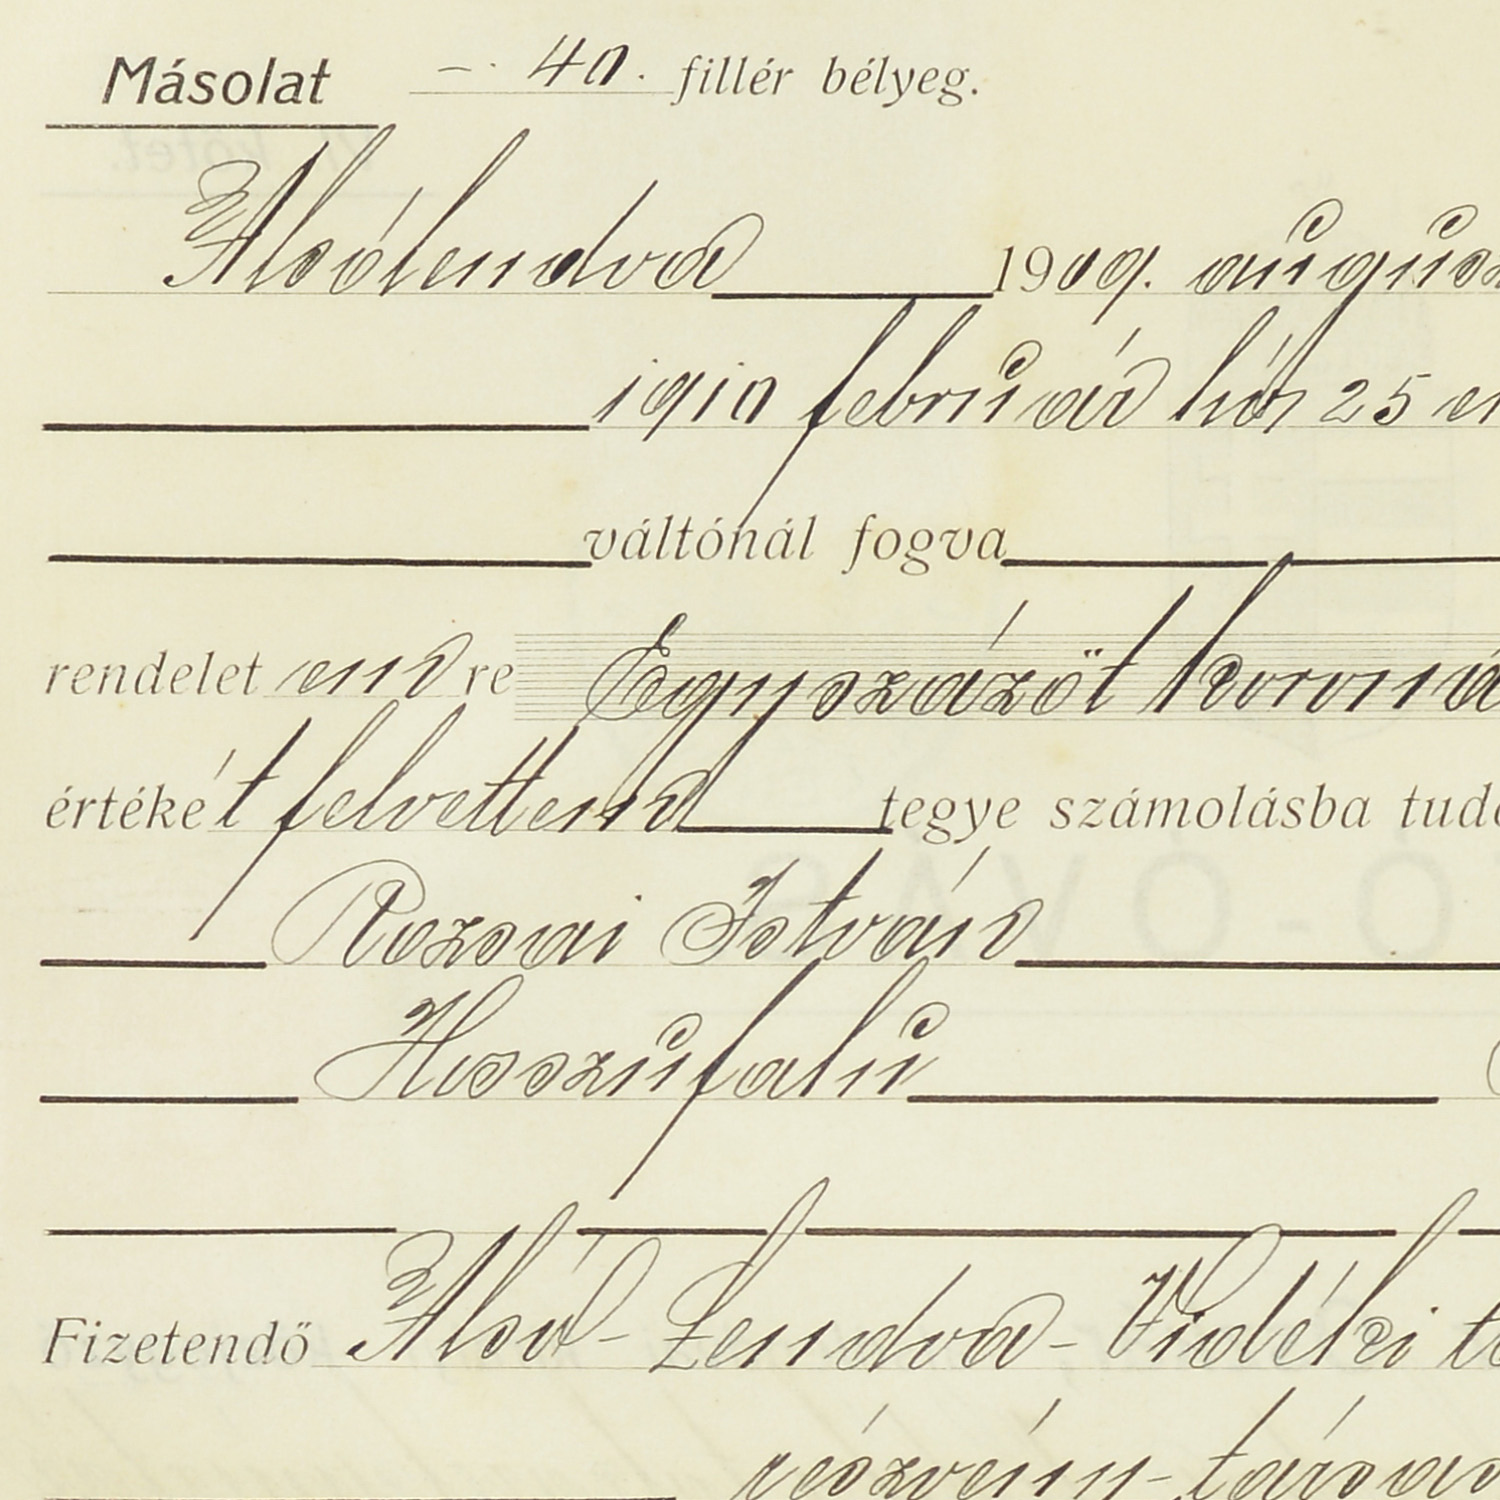 Másolat – . 40. fillér bélyeg.
Alsólendva 1909. augus
1910 február hó 25 en
váltónál fogva
rendelet em re Egyszázöt korona
értékét felvettem tegye számolásba tudó
Rozsai István
Hosszúfalu
Fizetendő Alsó-Lendva-Vidéki ta
részvény-társas